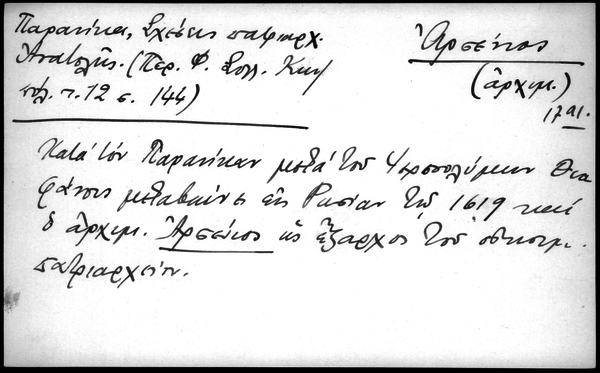 Παρανίκα, Σχέσεις πατριαρχ.
Ἀνατολῆς. (Περ. Φ. Συλλ. Κων
πόλ. τ. 12 σ. 144)
Ἀρσένιος
(ἀρχιμ.)
17 αι.
Κατὰ τὸν Παρανίκαν μετὰ τοῦ Ἱεροσολύμων Θεο
φάνους μεταβαίνει εἰς Ρωσίαν τῷ 1619 καὶ
ὁ ἀρχιμ. Ἀρσένιος ὡς ἔξαρχος τοῦ οἰκουμ.
πατριαρχείου.